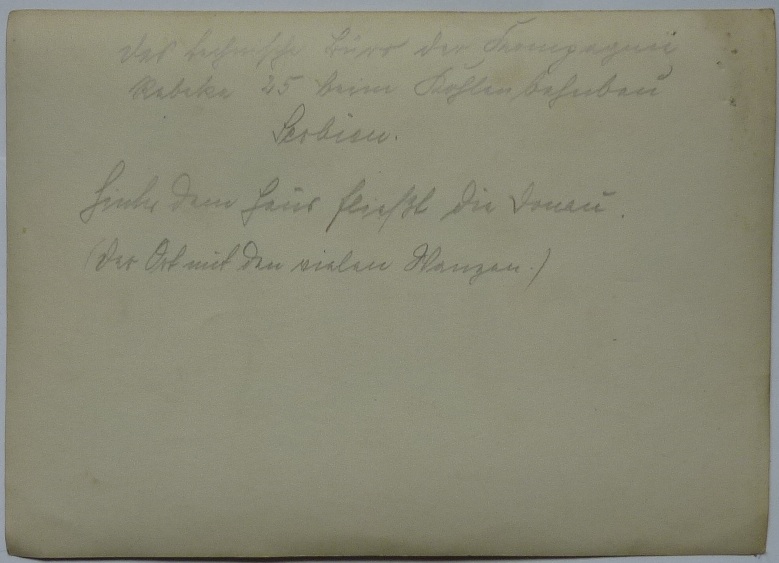 Das technische Büro der Kompagnie
Rebeka 25 beim Kohlenbahnbau
Serbien.
Hinter dem Haus fließt die Donau.
(Der Ort mit den vielen Wanzen.)